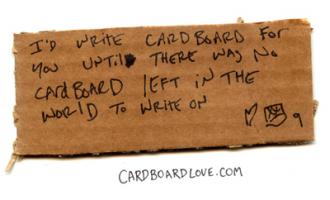 I'D WRITE CARDBOARD FOR
YOU UNTIL THERE WAS NO
CARDBOARD LEFT IN THE
WORLD TO WRITE ON
9
CARDBOARDLOVE.COM